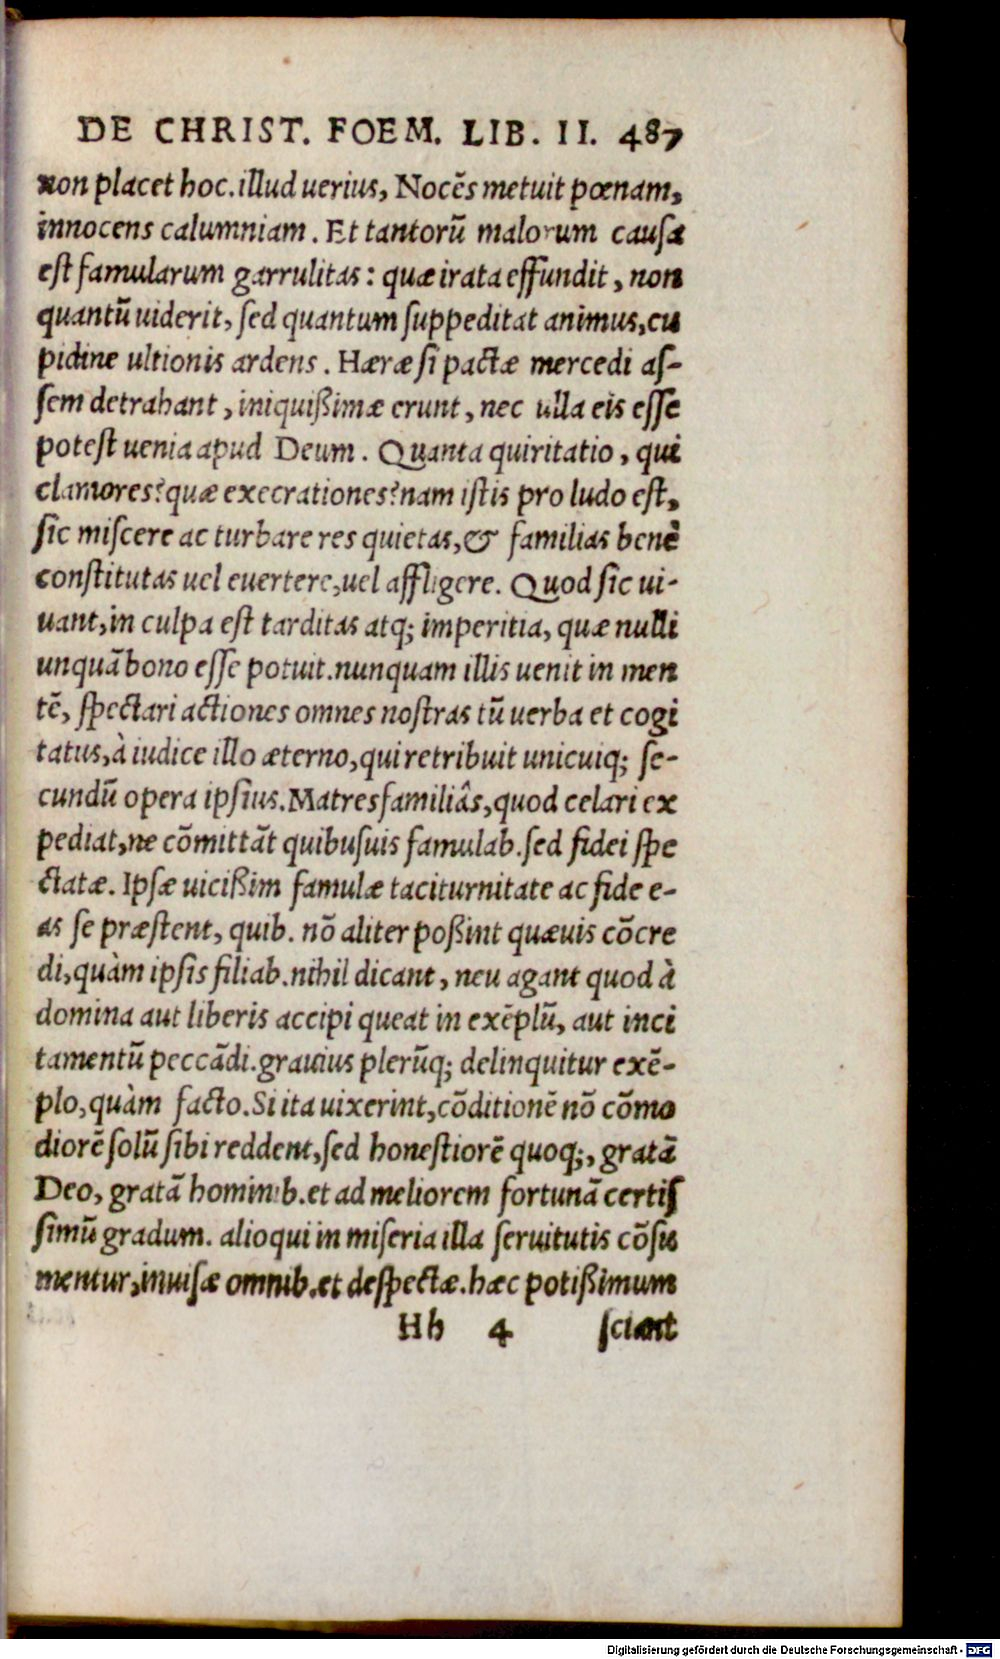 DE CHRIST. FOEM. LIB. II. 487
non placet hoc. illud uerius, Nocẽs metuit pœnam,
innocens calumniam. Et tantorũ malorum causa
est famularum garrulitas: quæ irata effundit, non
quantũ uiderit, sed quantum suppeditat animus, cu
pidine ultionis ardens. Hæræ si pactæ mercedi as-
sem detrahant, iniquißimæ erunt, nec ulla eis esse
potest uenia apud Deum. Quanta quiritatio, qui
clamores? quæ execrationes? nam istis pro ludo est,
sic miscere ac turbare res quietas, & familias benè
constitutas uel euertere, uel affligere. Quod sic ui-
uant, in culpa est tarditas atq; imperitia, quæ nulli
unquã bono esse potuit. nunquam illis uenit in men
tẽ, spectari actiones omnes nostras tũ uerba et cogi
tatus, à iudice illo æterno, qui retribuit unicuiq; se-
cundũ opera ipsius. Matresfamiliâs, quod celari ex
pediat, ne cõmittãt quibusuis famulab. sed fidei spe
ctatæ. Ipsæ uicißim famulæ taciturnitate ac fide e-
as se præstent, quib. nõ aliter poßint quæuis cõcre
di, quàm ipsis filiab. nihil dicant, neu agant quod à
domina aut liberis accipi queat in exẽplũ, aut inci
tamentũ peccãdi. grauius plerũq; delinquitur exẽ-
plo, quàm facto. Si ita uixerint, cõditionẽ nõ cõmo
diorẽ solũ sibi reddent, sed honestiorẽ quoq;, gratã
Deo, gratã hominib. et ad meliorem fortunã certis
simũ gradum. alioqui in miseria illa seruitutis cõsu
mentur, inuisæ omnib. et despectæ. hæc potißimum
Hh 4 sciant
Digitalisierung gefördert durch die Deutsche Forschungsgemeinschaft - DFG